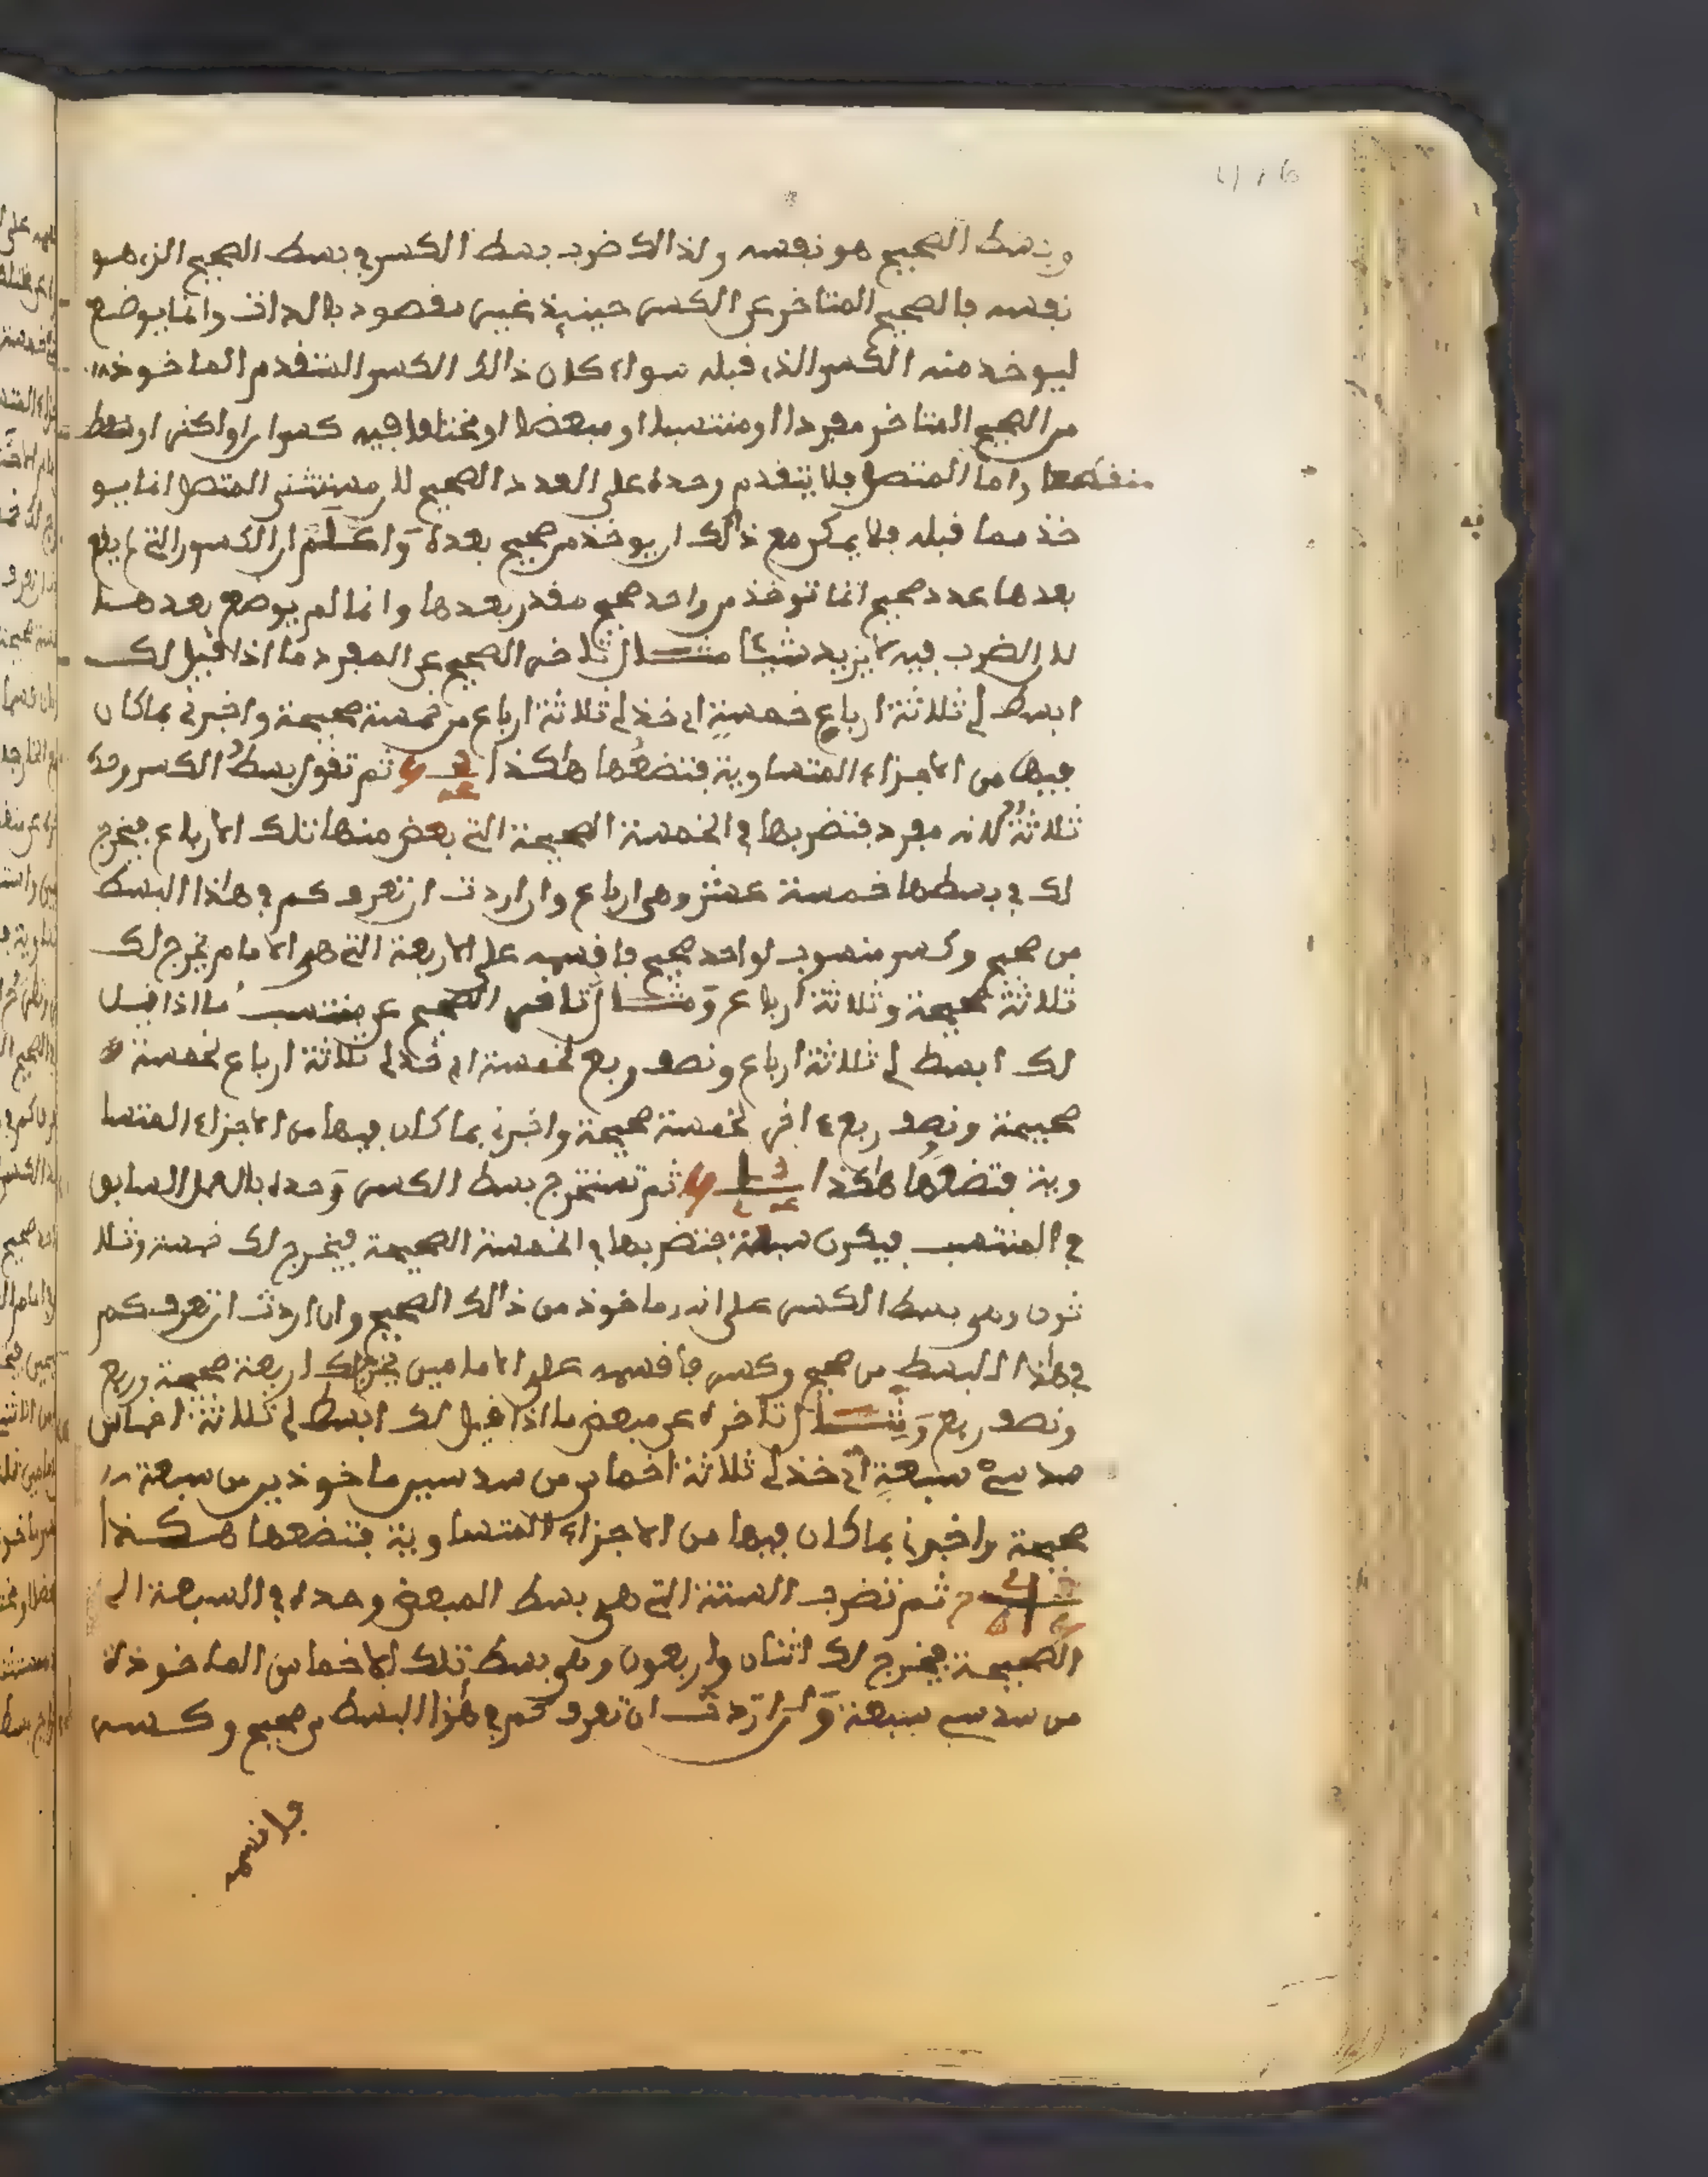 وبسط الصحيح هو نفسه ولذالك ضرب بسط الكسر في بسط الصحيح الذي هو
نفسه فالصحيح المتاخر عن الكسر حينئذ غير مقصود بالذات وانما يوضع
ليوخذ منه الكسر الذي قبله سواء كان ذالك الكسر المتقدم الماخوذ
من الصحيح المتاخر مفردا او منتسبا او مبعضا او مختلفا فيه كسران او اكثر او
منقطعا واما المتصل فلا يتقدم وحده على العدد الصحيح لان مستثنى المتصل انما يو
خذ مما قبله فلا يمكن مع ذالك ان يوخذ من صحيح بعده واعلم ان الكسور التي لم يقع
بعدها عدد صحيح انما توخذ من واحد صحيح مقدر بعدها وانما لم يوضع بعدها
لان الضرب فيه لا يزيد شيئا مثال تاخر الصحيح عن المفرد ما اذا قيل لك
ابسط لي ثلاثة ارباع خمسة اي خذ لي ثلاثة ارباع من خمسة صحيحة واخبرني بما كان
فيها من الاجزاء المتساوية فتضعها هاكذا ثم تقول بسط الكسر وحده
ثلاثة لانه مفرد فتضربها في الخمسة الصحيحة التي بعض منها تلك الارباع فيخرج
لك في بسطها خمسة عشر وهي ارباع وان اردت ان تعرف كم في هاذا البسط
من صحيح وكسر منسوب لواحد صحيح فاقسمه على الاربعة التي هي الامام يخرج لك
ثلاثة صحيحة وثلاثة ارباع ومثال تاخر الصحيح عن منتسب ما اذا قيل
لك ابسط لي ثلاثة ارباع ونصف ربع لخمسة اي خذ لي ثلاثة ارباع لخمسة
صحيحة ونصف ربع اخر لخمسة صحيحة واخبرني بما كان فيها من الاجزاء المتسا
وية فتضعها هاكذا ثم تستخرج بسط الكسر وحده بالعمل السابق
في المنتسب فيكون سبعة فتضربها في الخمسة الصحيحة فيخرج لك خمسة وثلا
ثون وهي بسط الكسر على انه ماخوذ من ذالك الصحيح وان اردت ان تعرف كم
في هاذا البسط من صحيح وكسر فاقسمه على الامامين يخرج لك اربعة صحيحة وربع
ونصف ربع ومثال تاخره عن مبعض ما اذا قيل لك ابسط لي ثلاثة اخماس
سدسي سبعة اي خذ لي ثلاثة اخماس من سدسين ماخوذين من سبعة
صحيحة واخبرني بما كان فيها من الاجزاء المتساوية فتضعها هكذا
ثم تضرب الستة التي هي بسط المبعض وحده في السبعة ال
الصحيحة فيخرج لك اثنان واربعون وهي بسط تلك الاخماس الماخوذة
من سدسي سبعة وان اردت ان تعرف كم في هاذا البسط من صحيح وكسر
فاقسمه